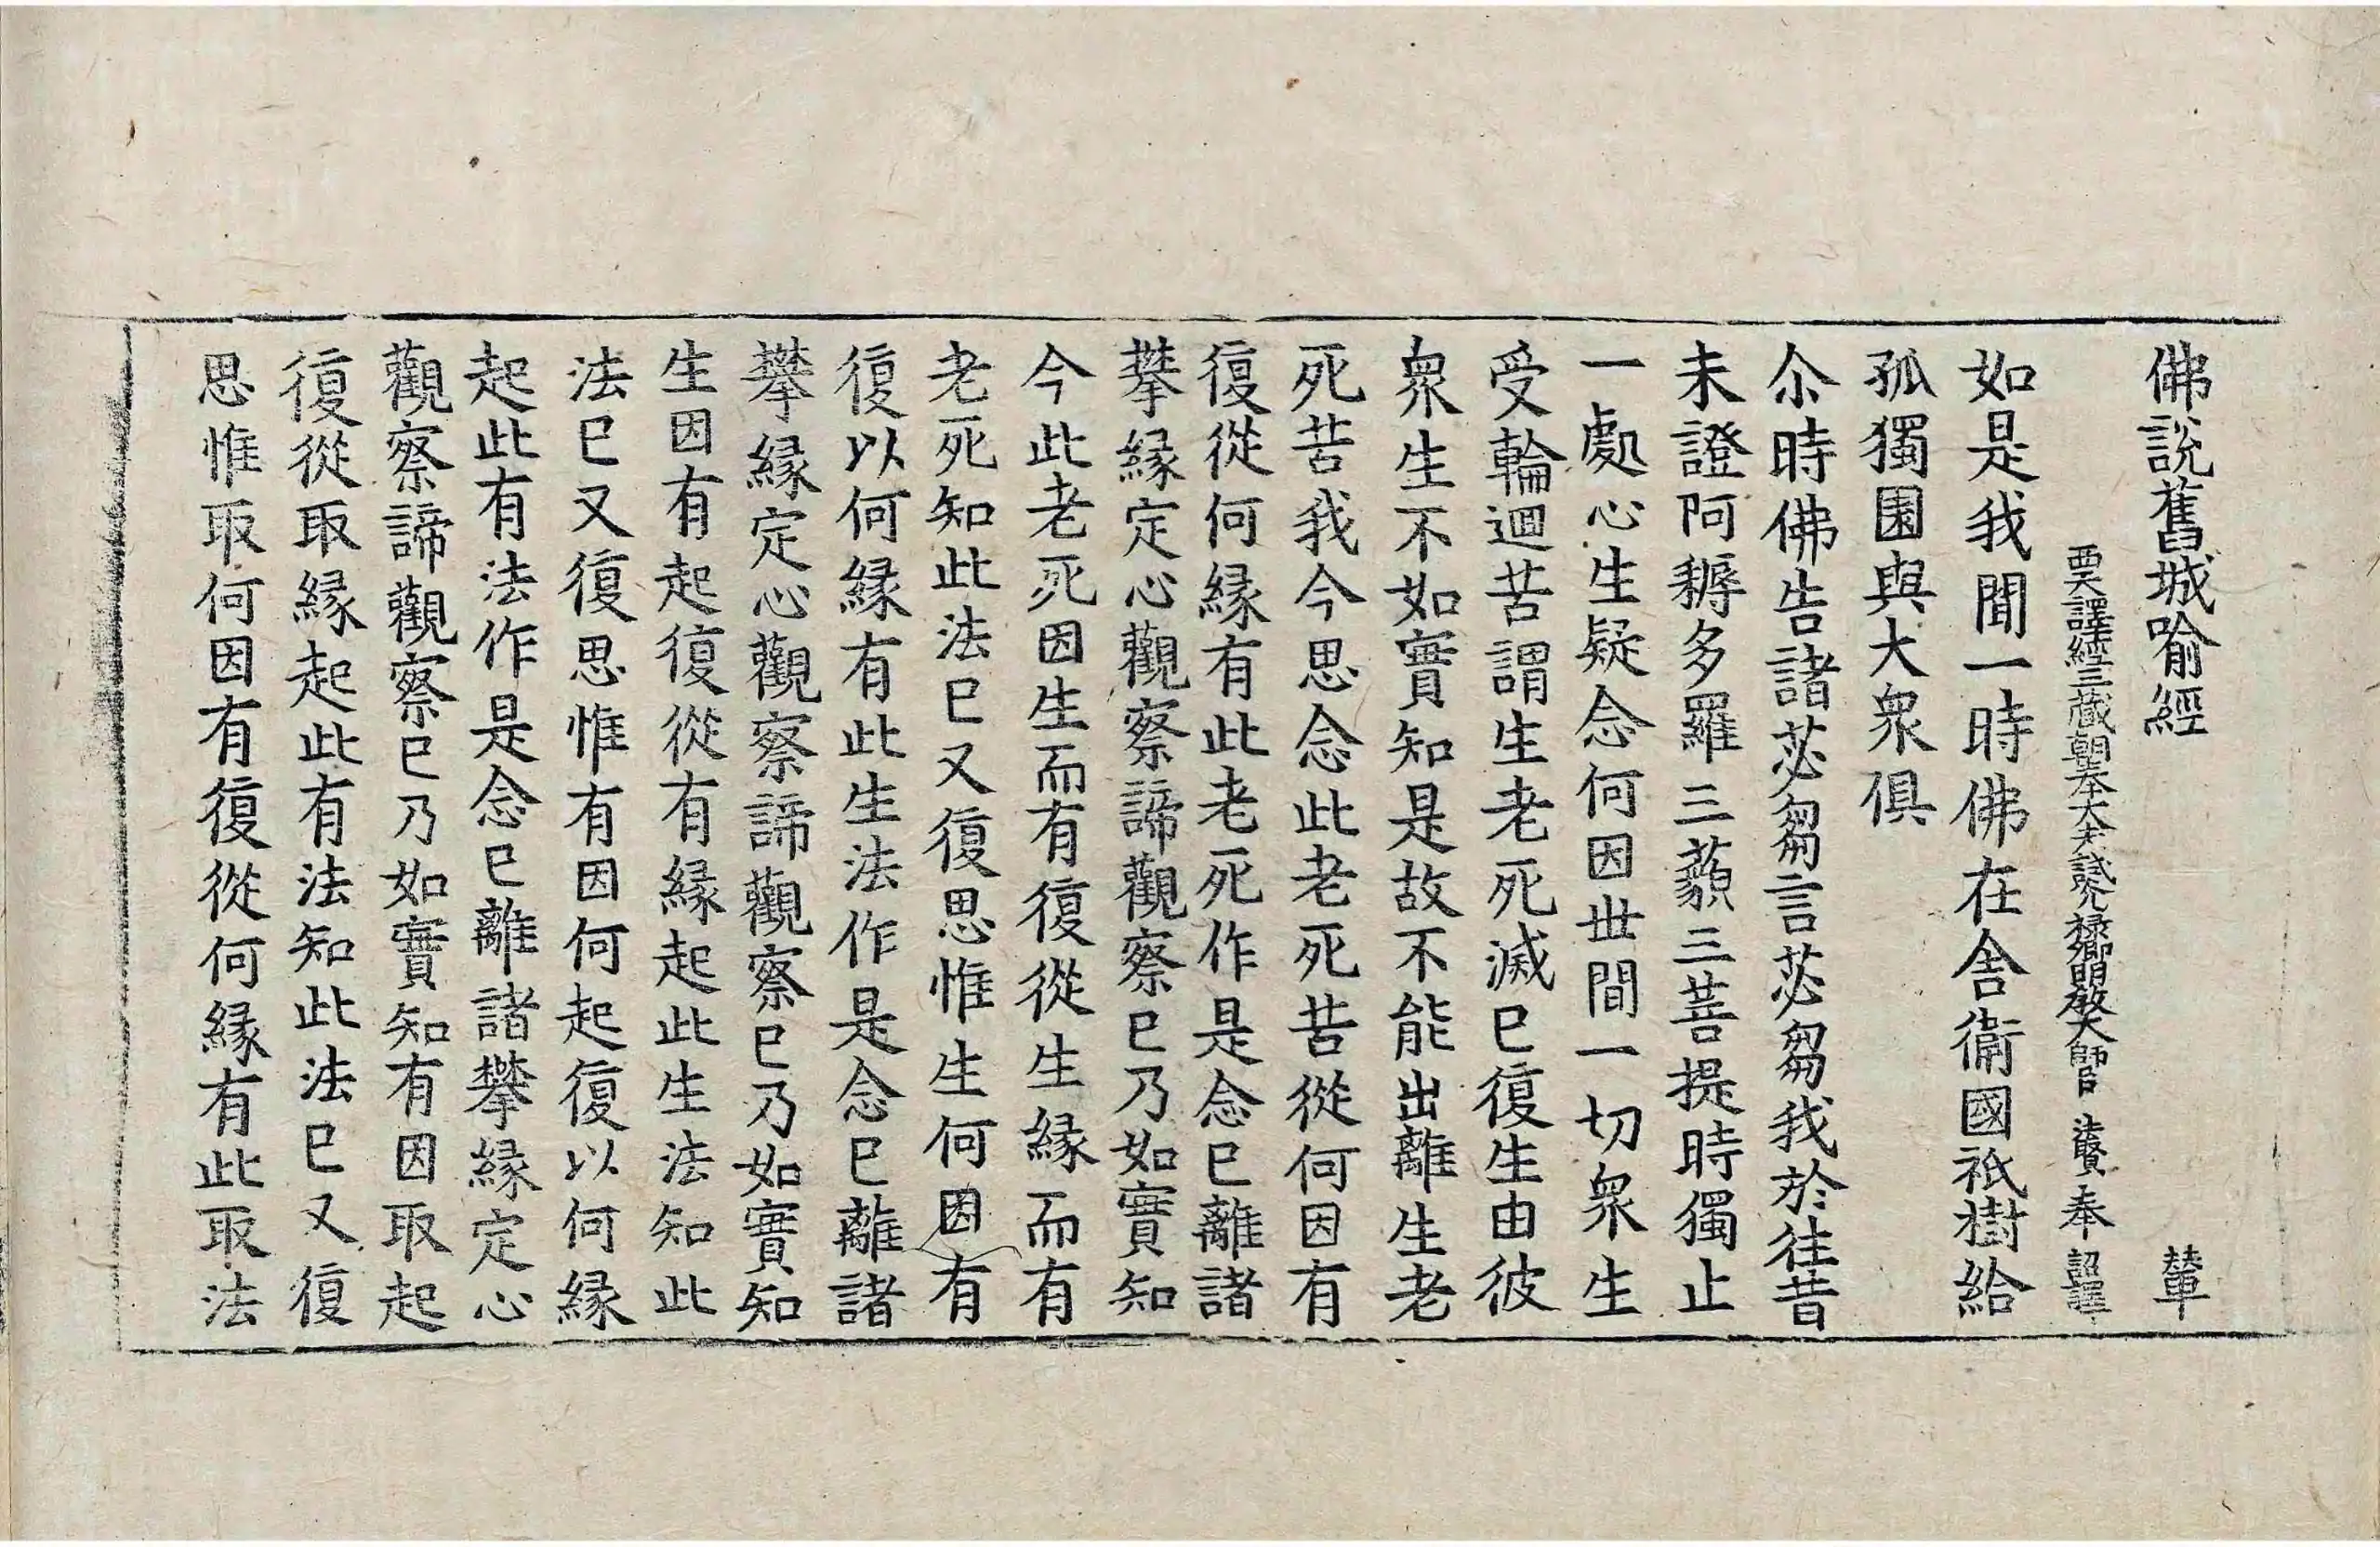 佛說舊城喻經 輦
西天譯經三藏朝奉大夫試光祿卿明教大師臣法賢奉詔譯
如是我聞一時佛在舍衛國祇樹給
孤獨園與大衆俱
尒時佛告諸苾芻言苾芻我於往昔
未證阿耨多羅三藐三菩提時獨止
一處心生疑念何因世間一切衆生
受輪迴苦謂生老死滅已復生由彼
衆生不如實知是故不能出離生老
死苦我今思念此老死苦從何因有
復從何緣有此老死作是念已離諸
攀緣定心觀察諦觀察已乃如實知
今此老死因生而有復從生緣而有
老死知此法已又復思惟生何因有
復以何緣有此生法作是念已離諸
攀緣定心觀察諦觀察已乃如實知
生因有起復從有緣起此生法知此
法已又復思惟有因何起復以何緣
起此有法作是念已離諸攀緣定心
觀察諦觀察已乃如實知有因取起
復從取緣起此有法知此法已又復
思惟取何因有復從何緣有此取法